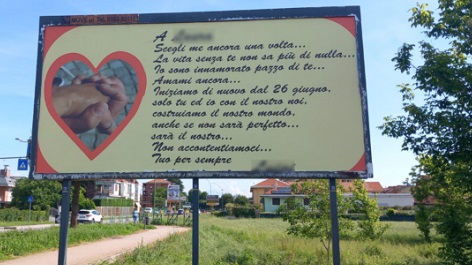 A
Scegli me ancora una volta...
La vita senza te non sa più di nulla...
Io sono innamorato pazzo di te...
Amami ancora...
Iniziamo di nuovo dal 26 giugno.
solo tu ed io con il nostro noi.
costruiamo il nostro mondo.
anche se non sarà perfetto...
sarà il nostro...
Non accontentiamoci...
Tuo per sempre